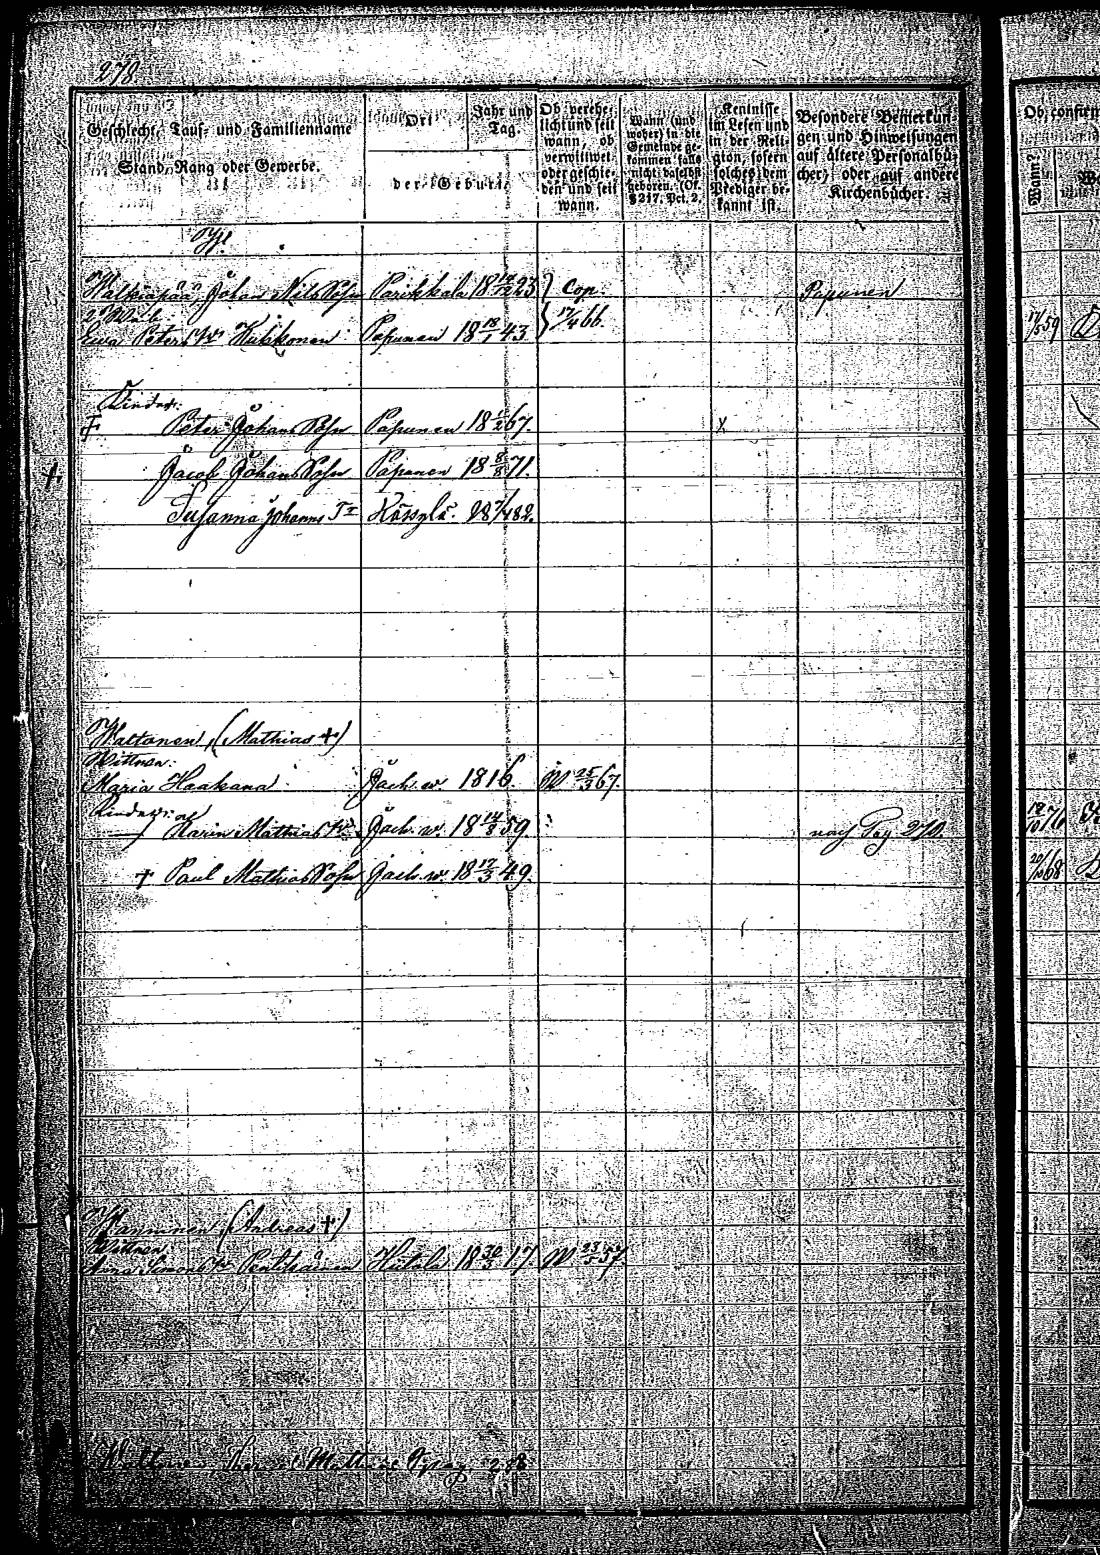 278
Geschlecht, Tauf- und Familienname
Stand, Rang oder Gewerbe.
Ort
Jahr und Tag.
der Geburt.
Ob verehelicht und seit wann, ob verwittwet oder geschieden und seit wann.
Wann (und woher) in die Gemeinde gekommen falls nicht daselbst geboren. (Cf. § 217. Pct. 2.
Kentnisse im Lesen und in der Religion, sofern solches dem Prediger bekannt ist.
Besondere Bemerkungen und Hinweisungen auf ältere Personalbücher, oder auf andere Kirchenbücher.
Ob confirm
Wann?
W.
Walkiapää, Johan Nils Sohn Parikkala 18 23 Cop. Papunen
2 Weib.
Ewa Peters Hukkonen Papunen 18 18/1 43 17/4 66. 59
Kinder:
† Peter Johans Sohn Papunen 18 1/2 67. x
†. Jacob Johans Sohn Papunen 18 8/8 71.
Susanna Johanns Tr 82.
Waltonen, (Mathias †)
Wittwe:
Maria Haakana Jach. w. 1816. W 25/3 67.
Kinder:
Karin Mathias Jach. w. 18 14/8 59 nach Pag 270.
† Paul Mathias Sohn Jach. w. 18 17/3 49. 68
(Andreas †)
Wittwe:
Anna Simons 18 30/3 17. W 23/5 57.